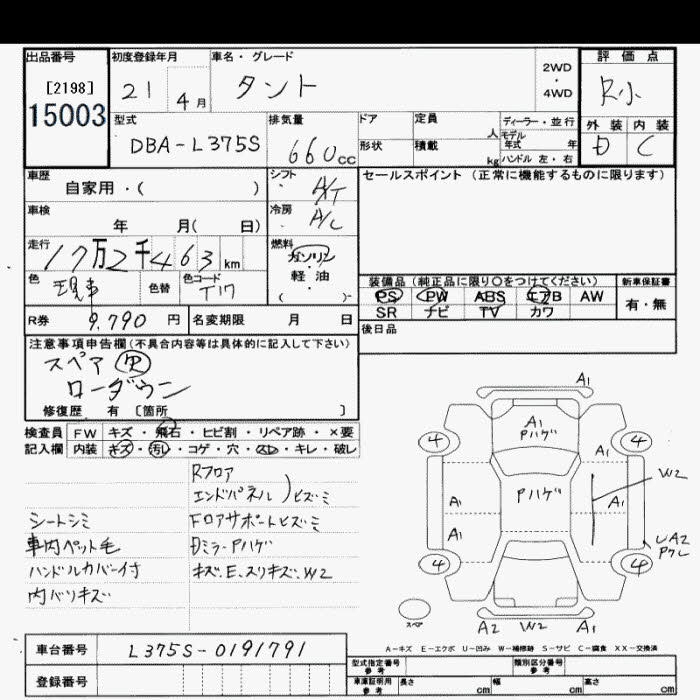 出品番号
[2198]
15003
初度登録年月
21 4 月
車名・グレード
タント
2WD
・
4WD
評価点
R小
外装 内装
D C
型式
DBA-L375S
排気量
660cc
ドア
定員
人
ディーラー・並行
モデル
年式 年
形状
積載
kg
ハンドル 左・右
車歴
自家用・( )
シフト
A/T
セールスポイント (正常に機能するものに限ります)
車検
年 月( 日)
冷房
A/C
走行
17万2千463 km
燃料
ガソリン
・
軽油
( )
色
色替
色コード
T17
装備品 (純正品に限り○をつけてください)
PS PW ABS エアB AW
SR ナビ TV カワ
新車保証書
有・無
R券 9,790 円
名変期限 月 日
後日品
注意事項申告欄(不具合内容等は具体的に記入して下さい)
スペア
ローダウン
修復歴 有 〔箇所 〕
検査員 FW キズ・飛石・ヒビ割・リペア跡・×要
記入欄 内装 キズ・汚レ・コゲ・穴・スレ・キレ・破レ
Rフロア
エンドパネル )ヒズミ
シートシミ
Fロアサポートヒズミ
車内ペット毛
Dミラー・Pハゲ
ハンドルカバー付
キズ.E.スリキズ.W2
内バリキズ
A1
A1
Pハゲ
4
4
Pハゲ
W2
A1
A1
A1
UA2
PクL
4
4
スペア
A2 W2 A1
A-キズ E-エクボ U-凹み W-補修跡 S-サビ C-腐食 XX-交換済
車台番号 L375S-0191791
登録番号
型式指定番号
参考
類別区分番号
参考
車庫証明用
参考
長さ cm 幅 cm 高さ cm